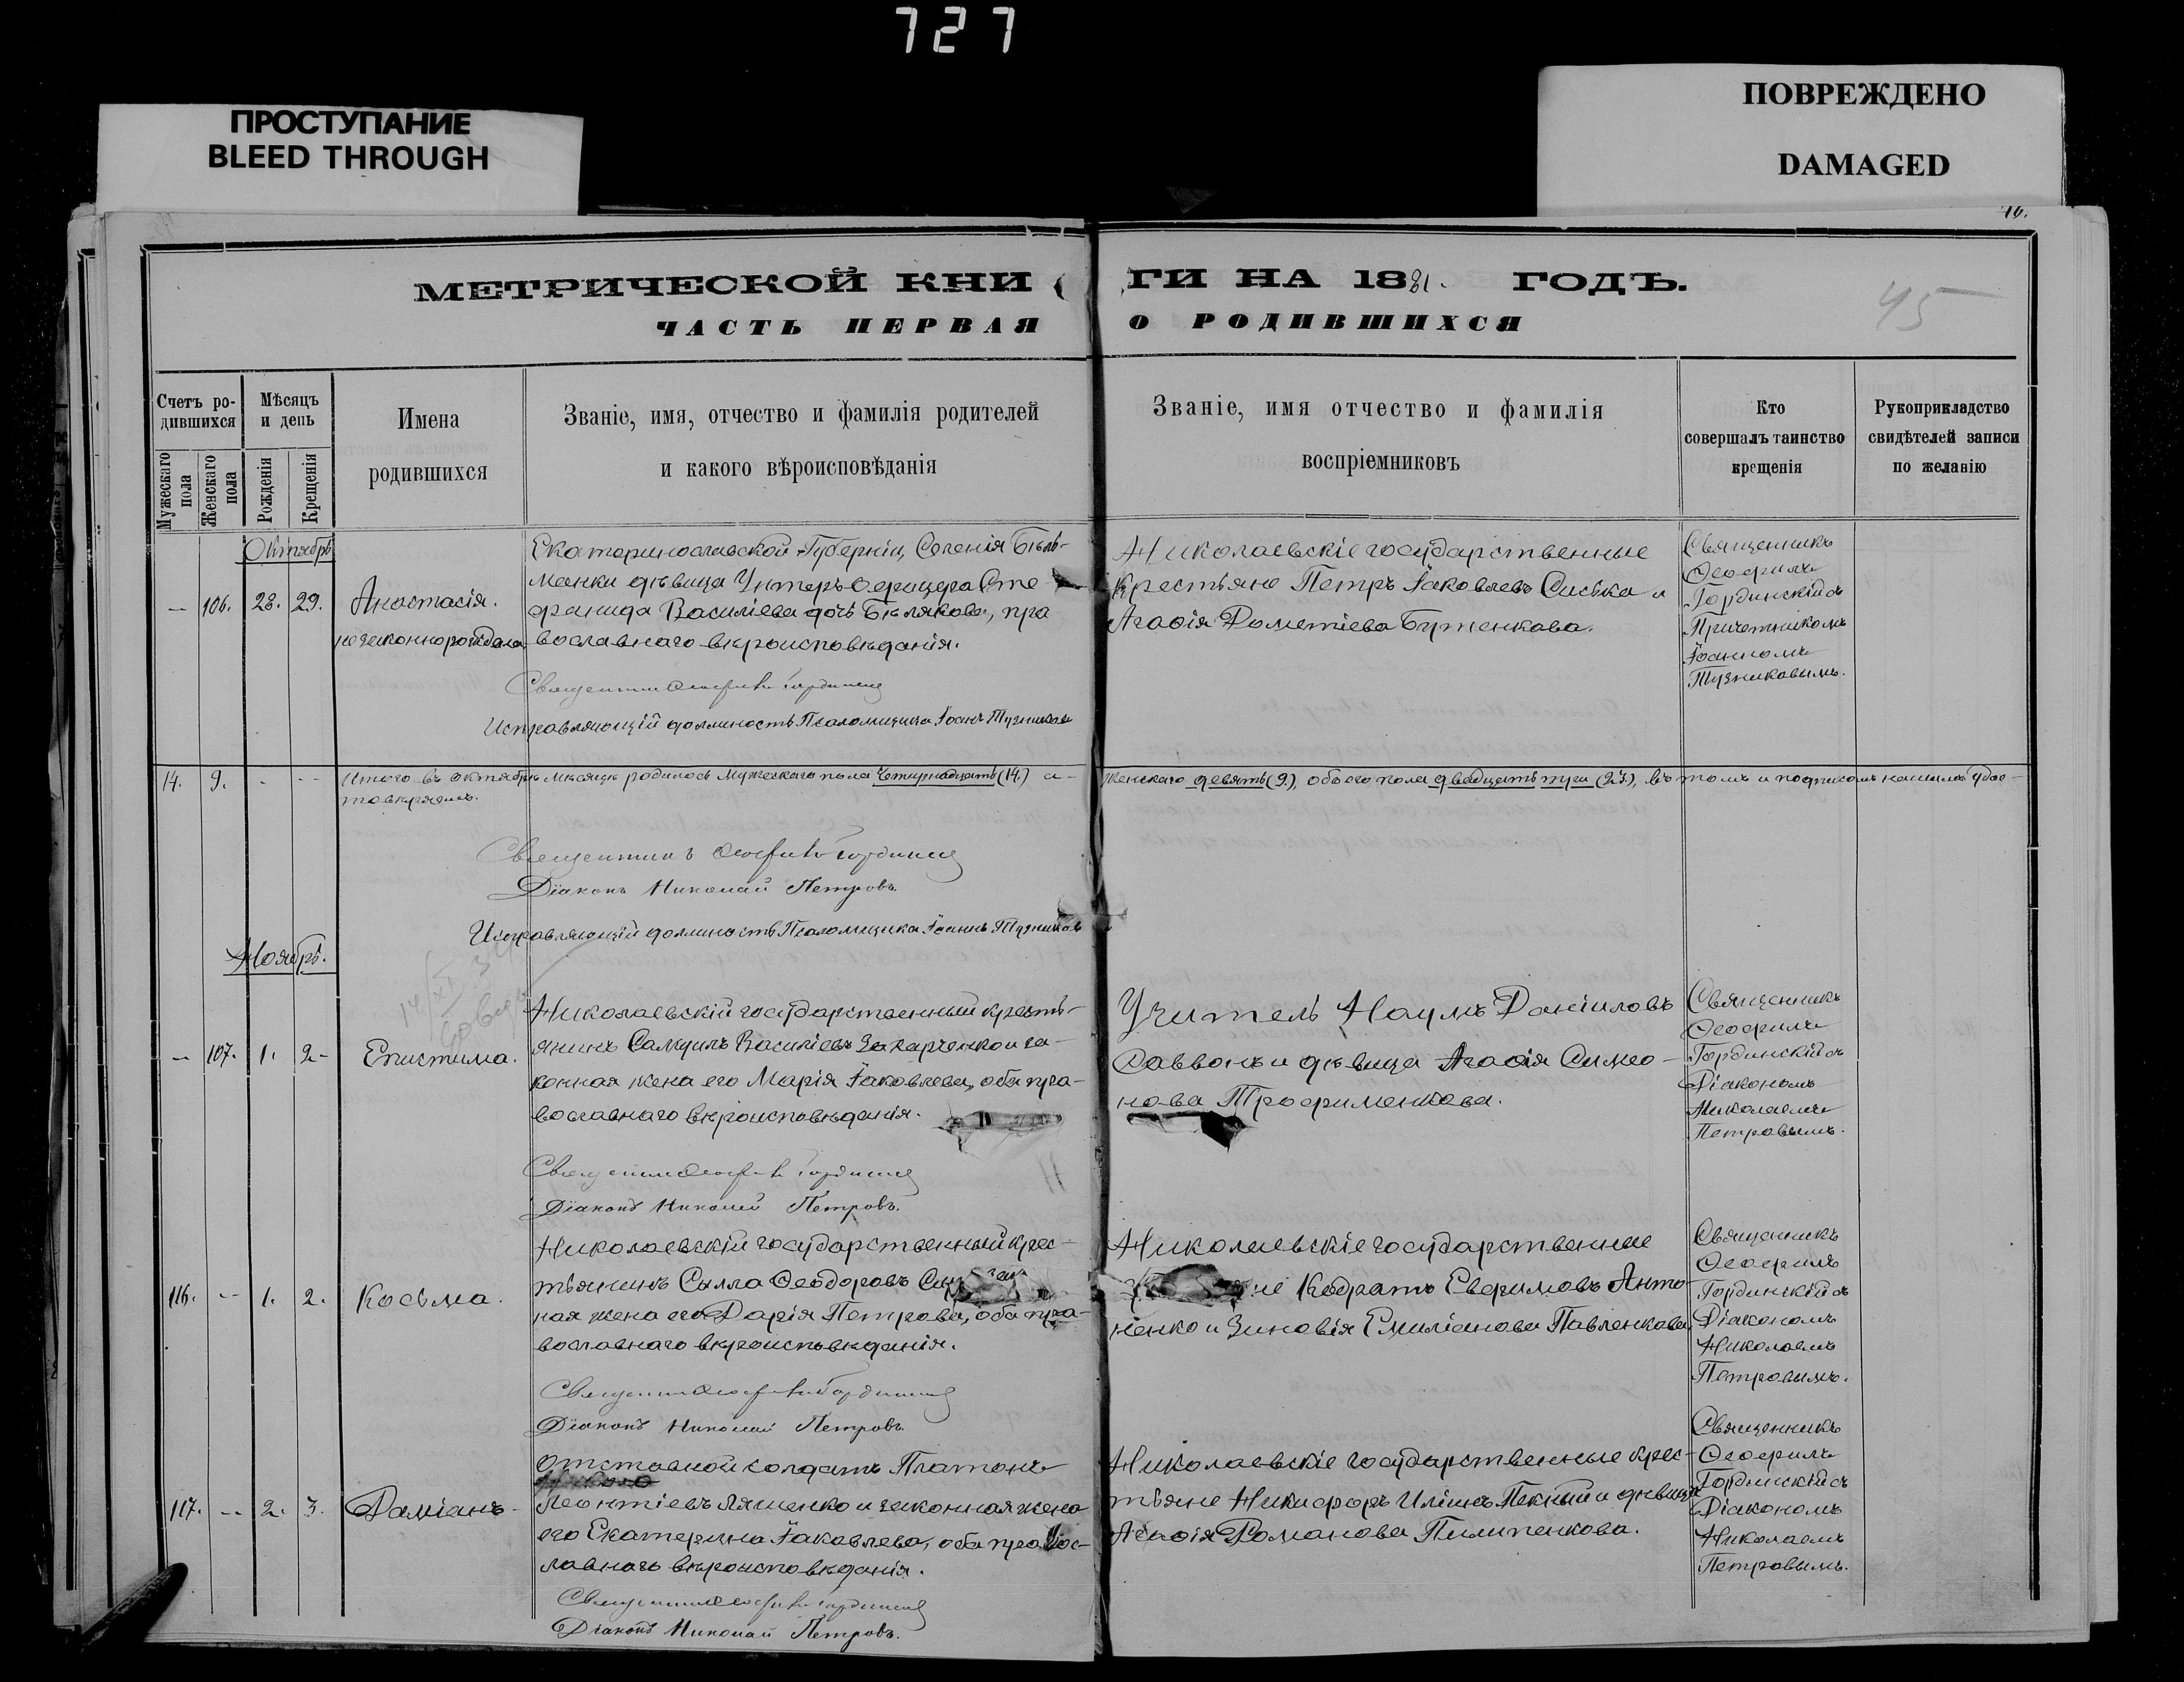 727
ПРОСТУПАНИЕ
BLEED THROUGH
ПОВРЕЖДЕНО
DAMAGED
46.
МЕТРИЧЕСКОЙ КНИ ГИ НА 1881. ГОДЪ.
45
ЧАСТЬ ПЕРВАЯ О РОДИВШИХСЯ
Счетъ ро-
дившихся
Мужескаго пола
Женскаго пола
Мѣсяцъ
и день
Рожденія
Крещенія
Имена
родившихся
Званіе, имя, отчество и фамилія родителей
и какого вѣроисповѣданія
Званіе, имя отчество и фамилія
воспріемниковъ
Кто
совершалъ таинство
крещенія
Рукоприкладство
свидѣтелей записи
по желанію
Октябрь
— 106. 28. 29.
Анастасія.
незаконнорождена
Екатеринославской Губерніи, Селенія Бѣль-
манки дѣвица Унтеръ-Офицера Сте-
фанида Василіева дочь Бѣлякова, пра
вославнаго вѣроисповѣданія.
Священникъ Ѳеофилъ Гординскій
Исправляющій должность Псаломщика Іоаннъ Тузниковъ
Николаевскіе государственные
Крестьяне Петръ Іаковлевъ Сиська и
Агаѳія Дометіева Бутенкова.
Священникъ
Ѳеофилъ
Гординскій съ
Причетникомъ
Іоанномъ
Тузниковымъ.
14. 9. - --
Итого въ октябрѣ мѣсяцѣ родилось Мужескаго пола Четырнадцать (14.) а- женскаго девять (9.), обоего пола двадцать три (23.), въ томъ и подписомъ нашимъ удос-
товѣряемъ.
Священникъ Ѳеофилъ Гординскій
Діаконъ Николай Петровъ.
Исправляющій должность Псаломщика Іоаннъ Тузниковъ
Ноябрь.
14/XI
— 107. 1. 2-
Епистима.
Николаевскій государственный кресть-
янинъ Самуилъ Василіевъ Захарченко и за-
конная жена его Марія Іаковлева, оба пра-
вославнаго вѣроисповѣданія.
Священникъ Ѳеофилъ Гординскій
Діаконъ Николай Петровъ.
Учитель Наумъ Даніиловъ
Саввонъ и дѣвица Агаѳія Симео-
нова Трофименкова.
Священникъ
Ѳеофилъ
Гординскій съ
Діакономъ
Николаемъ
Петровымъ.
116. -- 1. 2.
Косьма.
Николаевскій государственный крес-
тьянинъ Сылла Ѳеодоровъ
ная жена его Дарія Петрова, оба пра-
вославнаго вѣроисповѣданія.
Священникъ Ѳеофилъ Гординскій
Діаконъ Николай Петровъ.
Николаевскіе государственные
не Кодратъ Евфимовъ Анто-
ненко и Зиновія Емиліанова Павленкова.
Священникъ
Ѳеофилъ
Гординскій съ
Діакономъ
Николаемъ
Петровымъ.
117. -- 2. 3.
Даміанъ-
Отставной солдатъ Платонъ
Леонтіевъ Ляшенко и законная жена
его Екатерина Іаковлева, оба правос-
лавнаго вѣроисповѣданія.
Священникъ Ѳеофилъ Гординскій
Діаконъ Николай Петровъ.
Николаевскіе государственные крес-
тьяне Никифоръ Иліинъ Пекный и дѣвица
Агаѳія Романова Пилипенкова.
Священникъ
Ѳеофилъ
Гординскій съ
Діакономъ
Николаемъ
Петровымъ.